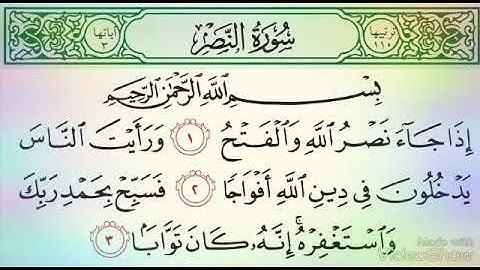 ترتيبها ١١٠ سُورَةُ النَّصْرِ آياتها ٣
بِسْمِ اللَّهِ الرَّحْمَٰنِ الرَّحِيمِ
إِذَا جَآءَ نَصْرُ اللَّهِ وَالْفَتْحُ ١ وَرَأَيْتَ النَّاسَ
يَدْخُلُونَ فِي دِينِ اللَّهِ أَفْوَاجًا ٢ فَسَبِّحْ بِحَمْدِ رَبِّكَ
وَاسْتَغْفِرْهُ ۚ إِنَّهُ كَانَ تَوَّابًا ٣
Made with
VideoShow